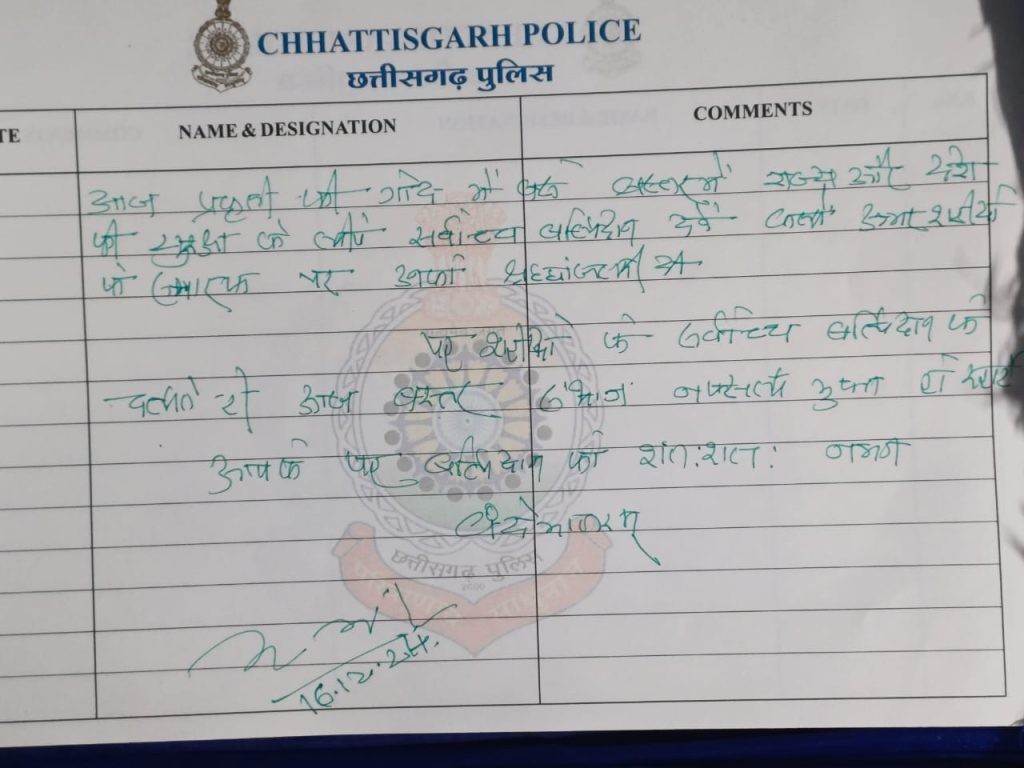 CHHATTISGARH POLICE
छत्तीसगढ़ पुलिस
TE NAME & DESIGNATION COMMENTS
आज प्रकृती की गोद में बसे बस्तर में राज्य और देश
की सुरक्षा के लीये सर्वोच्च बलिदान देने वाले अमर शहीदों
के स्मारक पर उनको श्रद्धांजली
शहीदों के सर्वोच्च बलिदान के
चलते ही आज बस्तर संभाग नक्सल मुक्त हो
आपके बलिदान को शत:शत: नमन
वंदेमातरम्
16.12.24.
छत्तीसगढ़ पुलिस